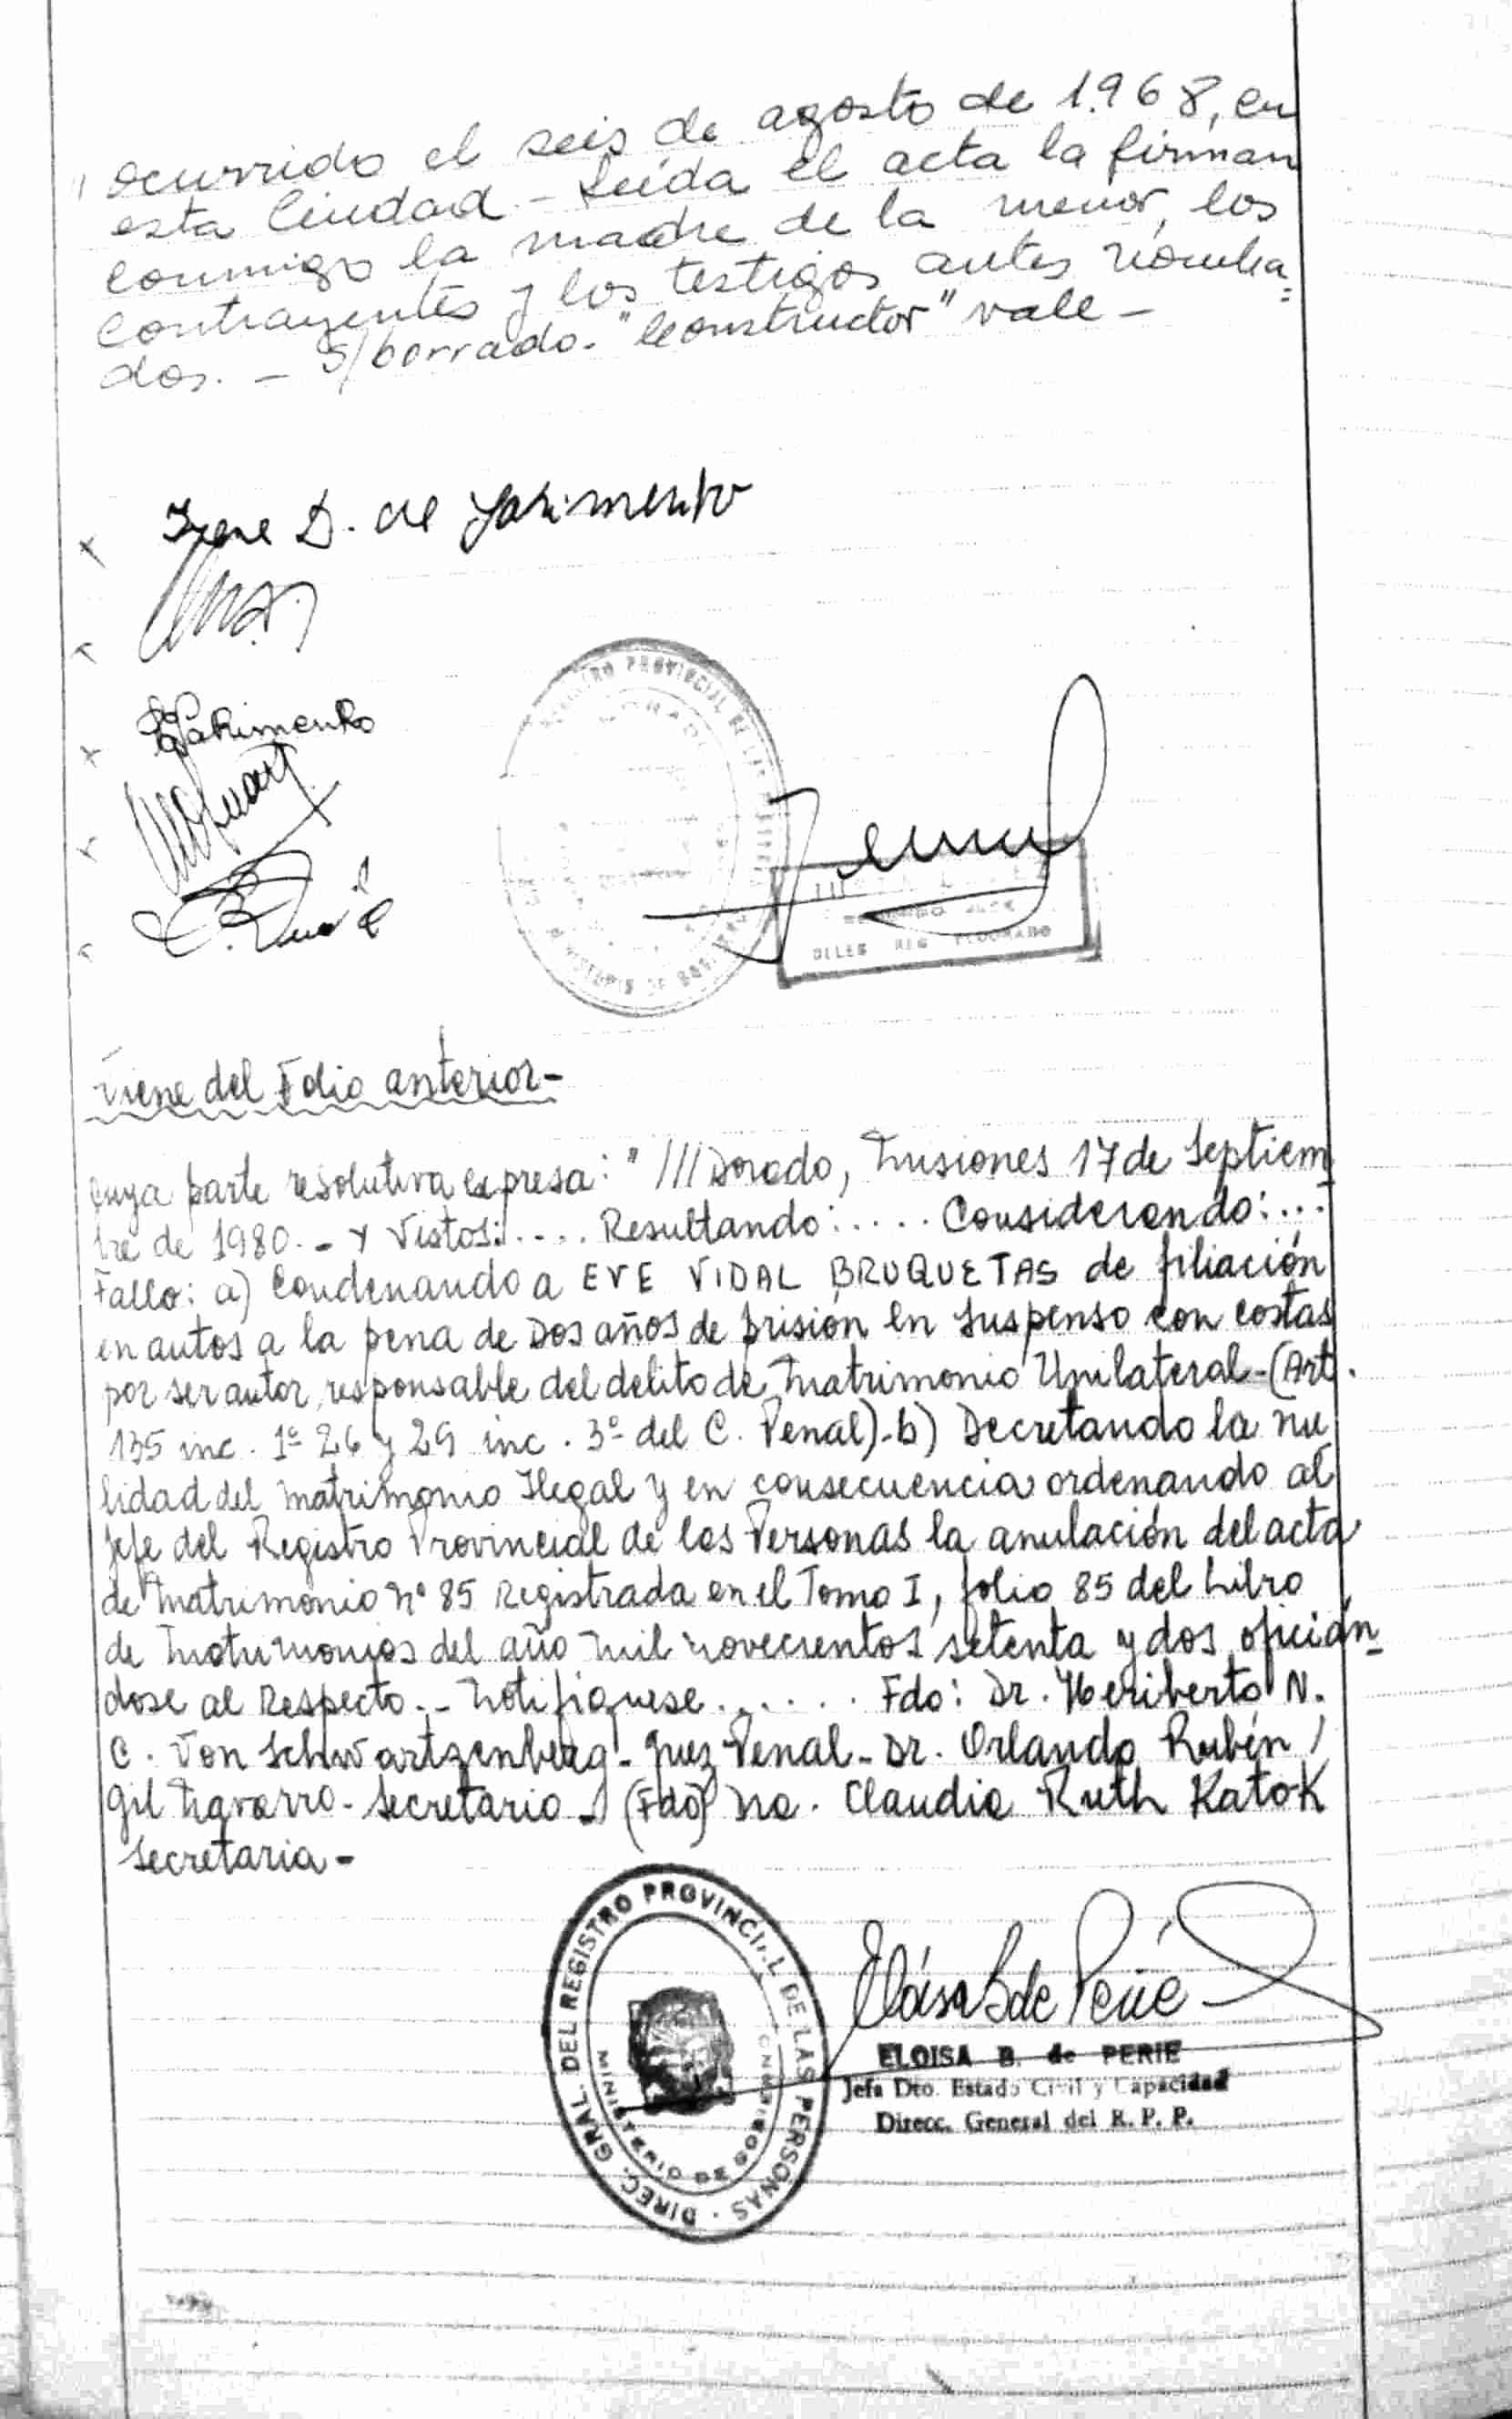 ocurrido el seis de agosto de 1.968, en
esta Ciudad - Leída el acta la firman
conmigo la madre de la menor, los
contrayentes y los testigos antes nombra=
dos. - S/borrado. "Constructor" vale -
Irene D. de Jakimenko
Jakimenko
REGISTRO PROVINCIAL DE LAS
ELDORADO
Viene del Folio anterior-
cuya parte resolutiva expresa: "///Dorado, Misiones 17 de Septiem
bre de 1980. - Y Vistos: .... Resultando: ..... Considerando: ...
Fallo: a) Condenando a EVE VIDAL BRUQUETAS de filiación
en autos a la pena de Dos años de prisión en suspenso con costas
por ser autor responsable del delito de Matrimonio Unilateral - (Art.
135 inc. 1º 26 y 29 inc. 3º del C. Penal).- b) Decretando la nu
lidad del matrimonio Ilegal y en consecuencia ordenando al
Jefe del Registro Provincial de las Personas la anulación del acta
de Matrimonio Nº 85 Registrada en el Tomo I, folio 85 del Libro
de Matrimonios del año mil novecientos setenta y dos oficián-
dose al Respecto. - Notifiquese ...... Fdo: Dr. Heriberto N.
C. Von Schwartzenberg - Juez Penal - Dr. Orlando Rubén
Gil Navarro - Secretario - (Fdo) Dra. Claudia Ruth Katok
Secretaria -
DIREC. GRAL. DEL REGISTRO PROVINCIAL DE LAS PERSONAS
MINISTERIO DE GOBIERNO
Eloisa B de Perié
ELOISA B. de PERIE
Jefa Dto. Estado Civil y Capacidad
Direcc. General del R. P. P.